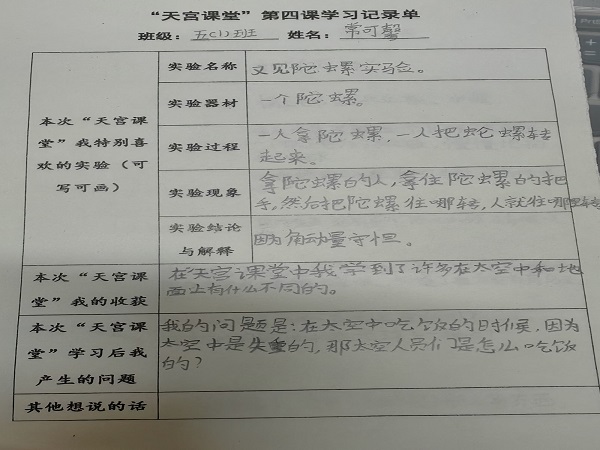 “天宫课堂”第四课学习记录单
班级：五(1)班 姓名：常可馨
本次“天宫课堂”我特别喜欢的实验（可写可画）
实验名称 又见陀螺实验。
实验器材 一个陀螺。
实验过程 一人拿陀螺，一人把陀螺转
起来。
实验现象 拿陀螺的人，拿住陀螺的把
手，然后把陀螺往哪转，人就往哪里转
实验结论
与解释 因为角动量守恒。
本次“天宫课
堂”我的收获
在天宫课堂中我学到了许多在太空中和地
面上有什么不同的。
本次“天宫课
堂”学习后我
产生的问题
我的问题是：在太空中吃饭的时候，因为
太空中是失重的，那太空人员们是怎么吃饭
的？
其他想说的话